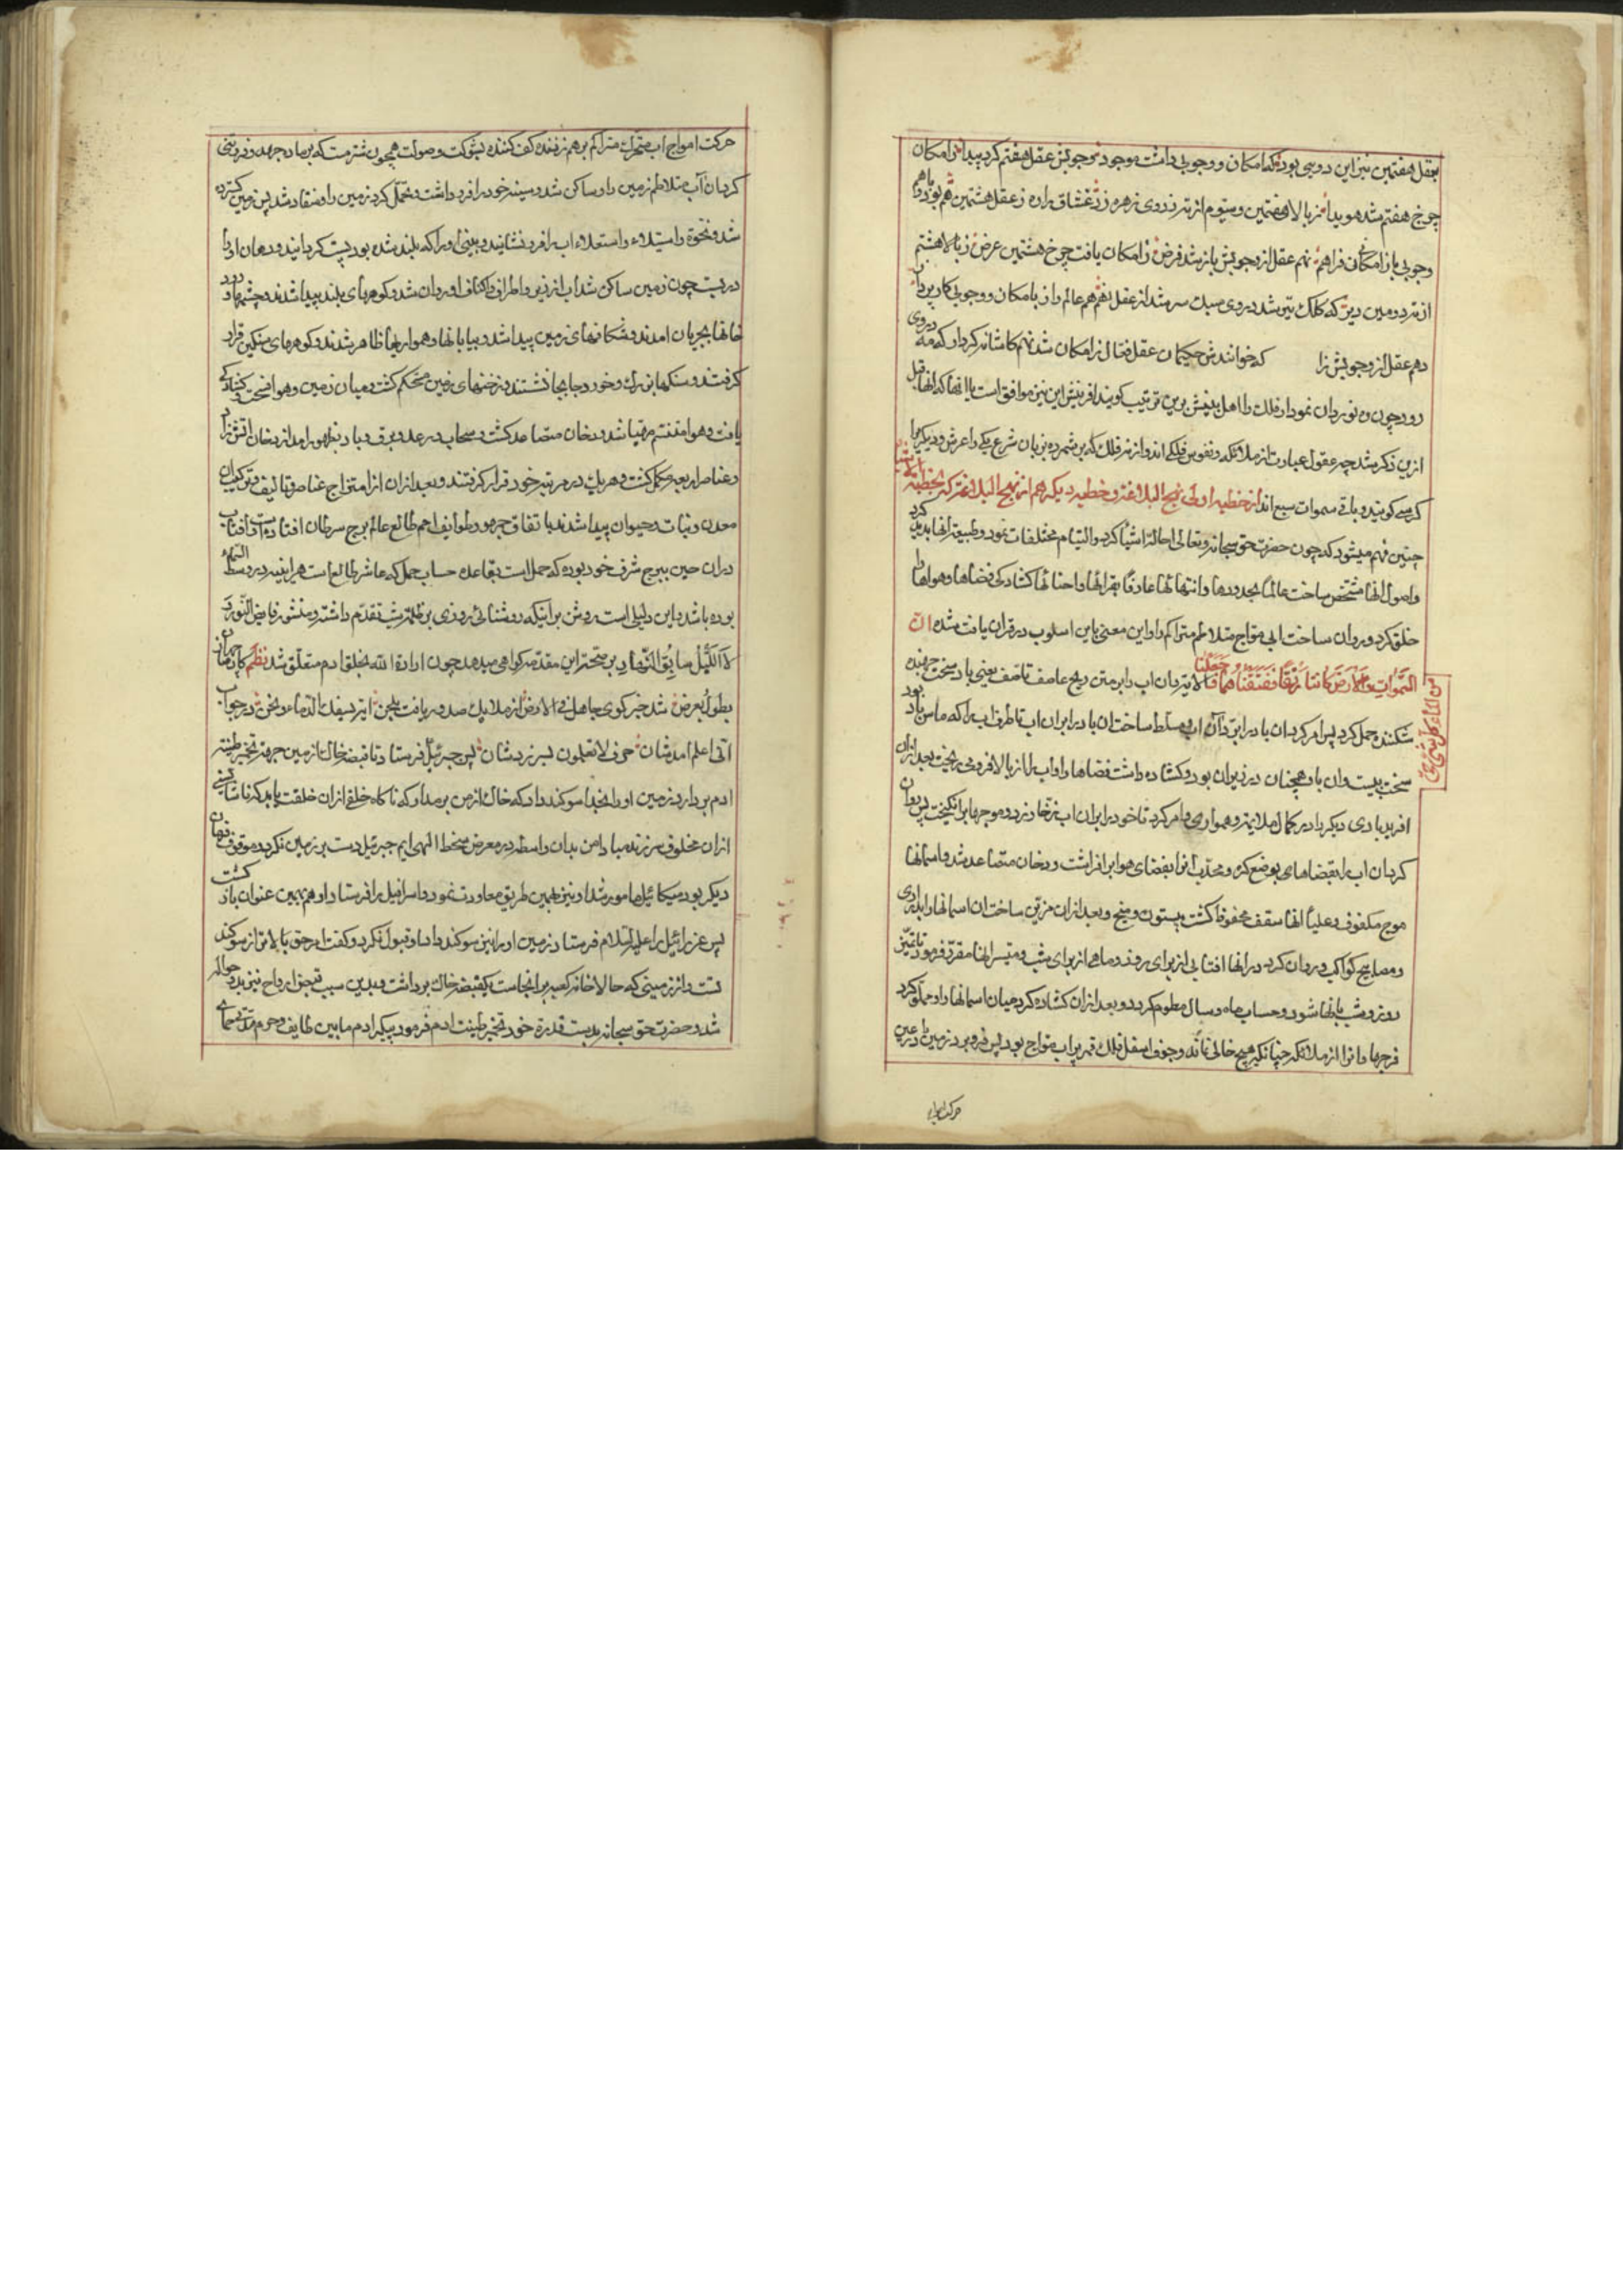 بعقل هفتمین نیز این دو بی بود که امکان و وجوبی داشت موجود ز وجوبش عقل هفتم کرد پیدا ز امکان
چرخ هفتم شد هویدا ز بالا هفتمین و سیوم از نه ز روی زهره زد عشاق را ره ز عقل هشتمین هم بود با هم
وجوبی باز امکانی فراهم نهم عقل از وجوبش باز شد فرض ز امکان یافت چرخ هشتمین عرض ز بالا هشتم
از نه دومین دین که کلک تیر شد در وی سبک سر شد از عقل نهم هم عالم را ز با امکان و وجوبی کار پرداز
دهم عقل از وجوبش زا که خوانندش حکیمان عقل فعال ز امکان شد نهم کاشانه کردار که مه در وی
رود چون ده نوردان نمودار فلک را اهل بینش برین ترتیب کویند افرینش این نیز موافق است با انها که انفا قبل
ازین ذکر شد چه عقول عبارت از ملائکه و نفوس فلکی اند و از نه فلک که بر شمرده بزبان شرع یکی را عرش و دیکری را
کرسی کویند و باقی سموات سبع اند از خطبه اولی نهج البلاغة و خطبه دیکر هم از نهج البلاغة که بخطبة الاشباح
چنین فهم میشود که چون حضرت حق سبحانه و تعالی احالة اشیا کرد و التیام مختلفات نمود و طبیعة انها پدید کرد
و اصول انها مشخص ساخت عالما بحدودها و انتهائها عارفا بقرائها و احنائها کشادکی فضاها و هواها را
خلق کرد و روان ساخت ابی مواج متلاطم متراکم را و این معنی باین اسلوب در قران یافت شده ان
السموات والارض کانتا رتقا ففتقناهما وجعلنا من الماء کل شی حی الایة پس ان اب را بر متن ریح عاصف قاصف یعنی باد سخت جهنده
شکننده حمل کرد پس امر کرد ان باد را برد ان اب و مسلط ساخت ان باد را بر ان اب تا طرف اب را که ماس باد بود
سخت ببست و ان باد همچنان در زیر ان بود و کشاده داشت فضاها را و اب را از بالا فرو می ریخت بعد از ان
افرید بادی دیکر را در کمال ملایمت و همواری و امر کرد تا خود را بر ان اب زخار زد و موجها بر انکیخت پس روان
کرد ان اب را بفضاهای بوضع کره و محدب انرا بفضای هوا بر افراشت و دخان متصاعد شد و اسمانها
موج مکفوف و علیا انها سقف محفوفا کشت بی ستون و میخ و بعد از ان مزین ساخت ان اسمانها را بدراری
و مصابیح کواکب و روان کرد در انها افتابی از برای روز و ماهی از برای شب و مسیر انها مقرر فرمود تا تمیز
روز و شب بانها شود و حساب ماه و سال معلوم کردد و بعد از ان کشاده کرد میان اسمانها را و مملو کرد
فرجها را از ملائکه چنانکه هیچ خالی نماند و جوف اسفل فلک قمر پر اب مواج بود پس فرو برد زمین را در عین
حرکت امواج
حرکت امواج اب متحرک متراکم بر هم زننده کف کننده بشوکت و صولت همچون شتر مست که بر ماده جهد و فروتنی
کرد ان اب متلاطم زمین را و ساکن شد و سینه خود را فرو داشت و تحمل کرد زمین را و منقاد شد پس زمین کسترده
شد و نخوة و استیلاء و استعلاء اب را فرو نشانید و بینی او را که بلند شده بود پست کردانید و دهان او را
در بست چون زمین ساکن شد اب از زیر و اطراف و اکناف او روان شد و کوههای بلند پیدا شدند و چشمها و رود
خانها بجریان امدند و شکافهای زمین پیدا شد و بیابانها و هواریها ظاهر شدند و کوههای سنکین قرار
کرفتند و سنکها بزرک و خورد جابجا نشستند و زخنهای زمین محکم کشت و میان زمین و هوا فسحت و کشادکی
یافت و هوا متنسم مهیا شد و دخان متصاعد کشت و سحاب و رعد و برق و باد بظهور امد از دخان اتش زاد
و عناصر اربعه مکمل کشت و هر یک در مرتبه خود قرار کرفتند و بعد از ان از امتزاج عناصر و تالیف و ترکیب ان
معدن و نبات و حیوان پیدا شدند باتفاق جمهور طوایف امم طالع عالم برج سرطان افتاده است و افتاب
در ان حین ببرج شرف خود بوده که حمل است بقاعده حساب حمل که عاشر طالع است هر اینه در وسط السماء
بوده باشد و این دلیلی است روشن بر اینکه روشنائی روزی بر ظلمت شب تقدم داشته و منشور فایض النور
لا اللیل سابق النهار بر صحت این مقدمه کواهی میدهد چون ارادة الله بخلق ادم متعلق شد نظم
بطول بعرض شد خبرکوی جاعل فی الارض از ملایک صدور یافت بلحن اینه یسفک الدماء و نحن در جواب
انی اعلم امدشان حرف لا تعلمون بسر زدشان پس جبرئیل فرستاد تا قبضه خاک از زمین جهة تخمیر طینة
ادم بردارد زمین او را بخدا سوکند داد که خاک از من بر مدار که ناکاه خلقی از ان خلقت یابد که ناشایستی
از ان مخلوق سر زند مبادا من بدان واسطه در معرض سخط الهی ایم جبرئیل دست بر زمین نکرد و موقوف زمان
دیکر بود میکائیل مامور شد او نیز بهمین طریق معاودت نمود و اسرافیل را فرستاد او هم بهمین عنوان باز کشت
پس عزرائیل را علیه السلام فرستاد زمین او را نیز سوکند داد او قبول نکرد و کفت امر حق بالاتر از سوکند
تست و از زمینی که حالا خانه کعبه بر انجاست یکقبضه خاک برداشت و بدین سبب قبض ارواح نیز بدو حواله
شد و حضرت حق سبحانه بدست قدرة خود تخمیر طینت ادم فرمود پیکر ادم ما بین طایف و حرم